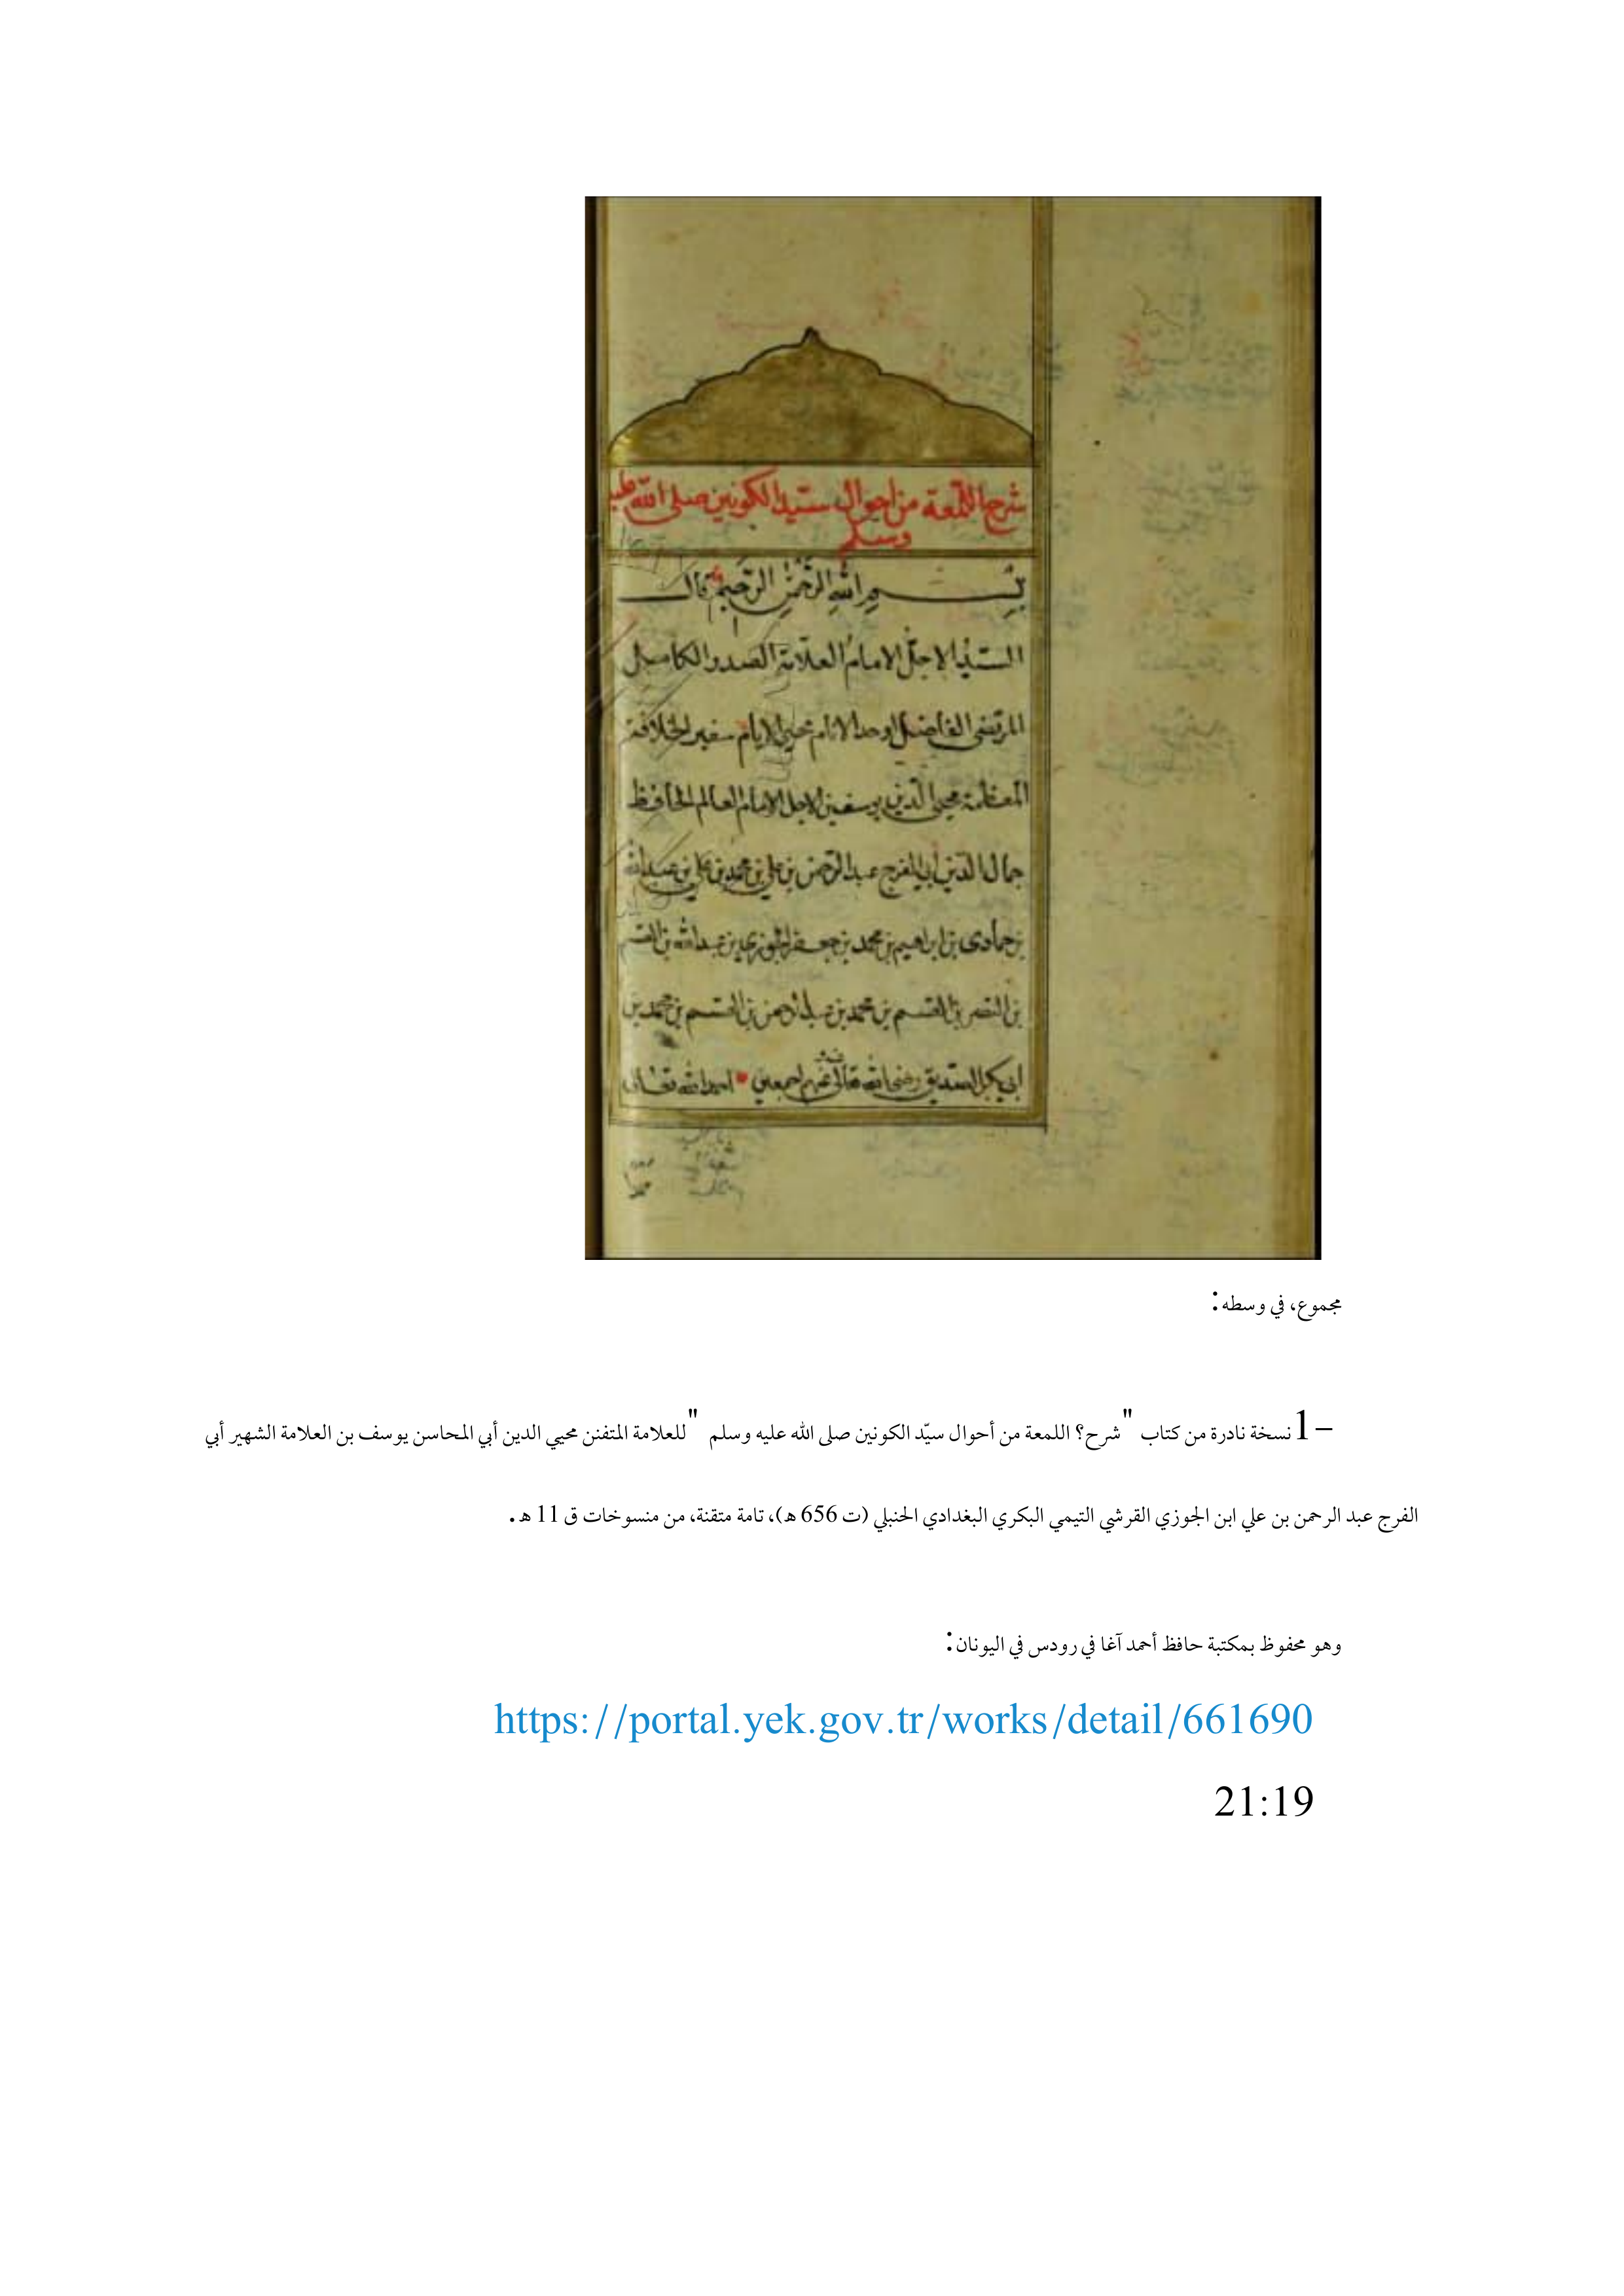 شرح اللمعة من احوال سيد الكونين صلى الله عليه
وسلم
بسم الله الرحمن الرحيم قال
السيد الاجل الامام العلامة الصدر الكامل
المرتضى الفاضل اوحد الانام محيى الايام سفير الخلافة
المعظمة محيى الدين يوسف بن الاجل الامام العالم الحافظ
جمال الدين ابي الفرج عبد الرحمن بن علي بن محمد بن علي بن عبد الله
بن حمادى بن ابراهيم بن محمد بن جعفر الجوزي بن عبد الله بن القسم
بن النضر بن القسم بن محمد بن عبد الرحمن بن القسم بن محمد بن
ابي بكر الصديق رضى الله تعالى عنهم اجمعين احمد الله تعالى
مجموع، في وسطه:
1– نسخة نادرة من كتاب "شرح؟ اللمعة من أحوال سيّد الكونين صلى الله عليه وسلم " للعلامة المتفنن محيي الدين أبي المحاسن يوسف بن العلامة الشهير أبي
الفرج عبد الرحمن بن علي ابن الجوزي القرشي التيمي البكري البغدادي الحنبلي (ت 656 ه)، تامة متقنة، من منسوخات ق 11 ه.
وهو محفوظ بمكتبة حافظ أحمد آغا في رودس في اليونان:
https://portal.yek.gov.tr/works/detail/661690
21:19